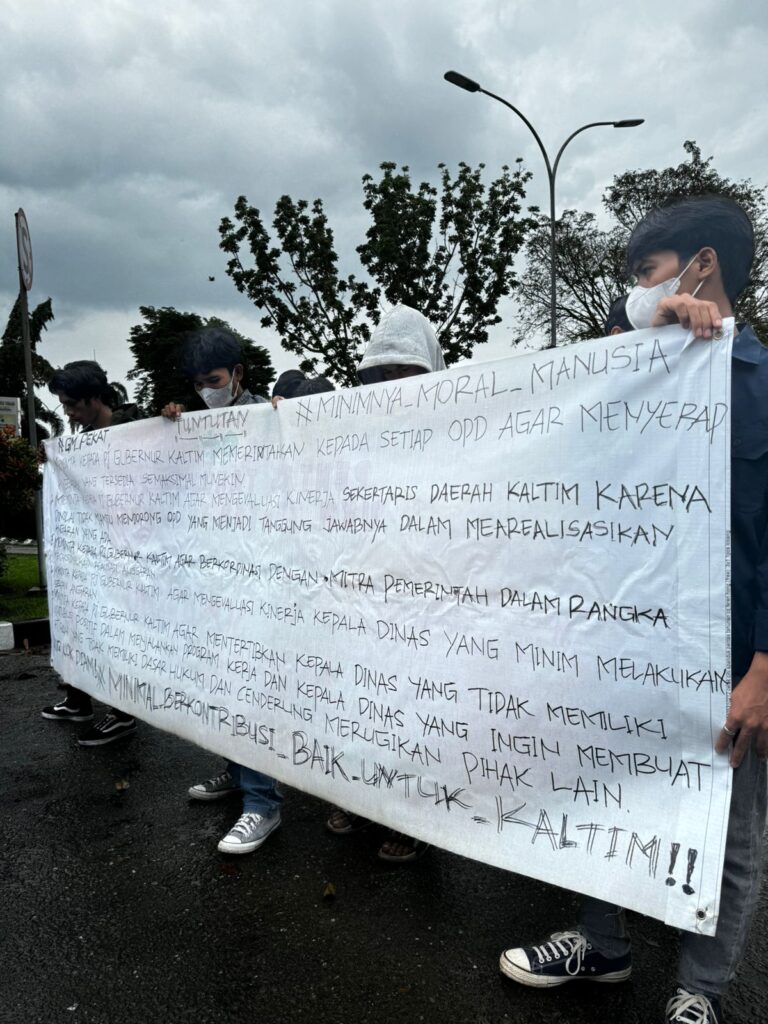 #MINIMNYA_MORAL_MANUSIA
TUNTUTAN
PJ GUBERNUR KALTIM MEMERINTAHKAN KEPADA SETIAP OPD AGAR MENYERAP
YANG TERSEDIA SEMAKSIMAL MUNGKIN
PJ GUBERNUR KALTIM AGAR MENGEVALUASI KINERJA SEKERTARIS DAERAH KALTIM KARENA
MENDORONG OPD YANG MENJADI TANGGUNG JAWABNYA DALAM MEAREALISASIKAN
YANG ADA
KEPADA PJ GUBERNUR KALTIM AGAR BERKORDINASI DENGAN MITRA PEMERINTAH DALAM RANGKA
KEPADA PJ GUBERNUR KALTIM AGAR MENGEVALUASI KINERJA KEPALA DINAS YANG MINIM MELAKUKAN
KEPADA PJ GUBERNUR KALTIM AGAR MENTERTIBKAN KEPALA DINAS YANG TIDAK MEMILIKI
POSITIF DALAM MENJALANKAN PROGRAM KERJA DAN KEPALA DINAS YANG INGIN MEMBUAT
YANG TIDAK MEMILIKI DASAR HUKUM DAN CENDERUNG MERUGIKAN PIHAK LAIN.
MINIMAL_BERKONTRIBUSI_BAIK_UNTUK_KALTIM!!